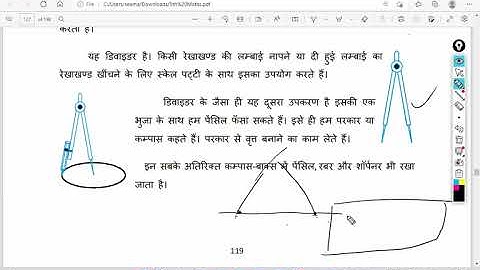 C:/Users/seema/Downloads/5th%20Maths.pdf
करता है।
यह डिवाइडर है। किसी रेखाखण्ड की लम्बाई नापने या दी हुई लम्बाई का
रेखाखण्ड खींचने के लिए स्केल पट्टी के साथ इसका उपयोग करते हैं।
डिवाइडर के जैसा ही यह दूसरा उपकरण है इसकी एक
भुजा के साथ हम पेंसिल फँसा सकते हैं। इसे ही हम परकार या
कम्पास कहते हैं। परकार से वृत्त बनाने का काम लेते हैं।
इन सबके अतिरिक्त कम्पास-बाक्स में पेंसिल, रबर और शॉर्पनर भी रखा
जाता है।
119